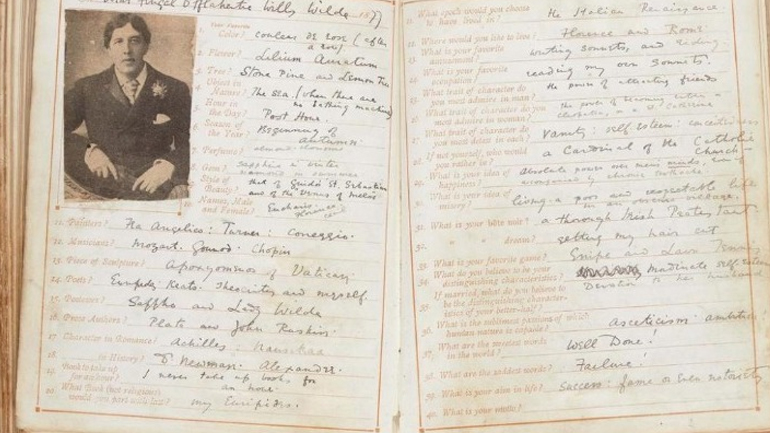 Fingal O'Flahertie Wills Wilde 1877
1. Your Favorite
Color? couleur de rose (after
a rose)
2. Flower? Lilium Auratum
3. Tree? Stone Pine and Lemon Tree
4. Object in
Nature? The Sea. (when there are
no bathing machines)
5. Hour in
the Day? Post Hour.
6. Season of
the Year? Beginning of
autumn
7. Perfume? almond-blossoms
8. Gem? Sapphire in winter
diamond in summer
9. Style of
Beauty? that of Guido's St. Sebastian
and of the Venus of Melos
10. Names, Male
and Female?
11. Painters? Fra Angelico: Turner: Correggio.
12. Musicians? Mozart. Gounod. Chopin
13. Piece of Sculpture? Apoxyomenos of Vatican
14. Poets? Euripides Keats. Theocritus and myself
15. Poetesses? Sappho and Lady Wilde
16. Prose Authors? Plato and John Ruskin.
17. Character in Romance? Achilles: Nausikaa
18. in History? Newman. Alexander.
19. Book to take up
for an hour? I never take up books for
an hour.
20. What Book (not religious)
would you part with last? my Euripides.
21. What epoch would you choose
to have lived in? the Italian Renaissance.
22. Where would you like to live? Florence and Rome
23. What is your favorite
amusement? writing sonnets, and
24. What is your favorite
occupation? reading my own sonnets.
25. What trait of character do
you most admire in man? the power of attracting friends
26. What trait of character do
you most admire in woman? the power of
27. What trait of character do
you most detest in each? Vanity: self-esteem: conceitedness
28. If not yourself, who would
you rather be? a Cardinal of the Catholic
Church
29. What is your idea of
happiness? Absolute power over men's minds, even if
accompanied by chronic toothache
30. What is your idea of
misery? living a poor and respectable life
in an obscure village.
31. What is your bête noire? a thorough Irish Protestant
32. " " dream? getting my hair cut
33. What is your favorite game? Snipe and Lawn Tennis
34. What do you believe to be your
distinguishing characteristics? inordinate self-esteem
35. If married, what do you believe to
be the distinguishing character-
istics of your better-half? Devotion to her husband
36. What is the sublimest passion of which
human nature is capable? Asceticism: ambition!
37. What are the sweetest words
in the world? Well Done!
38. What are the saddest words? Failure!
39. What is your aim in life? Success: fame or even notoriety
40. What is your motto?